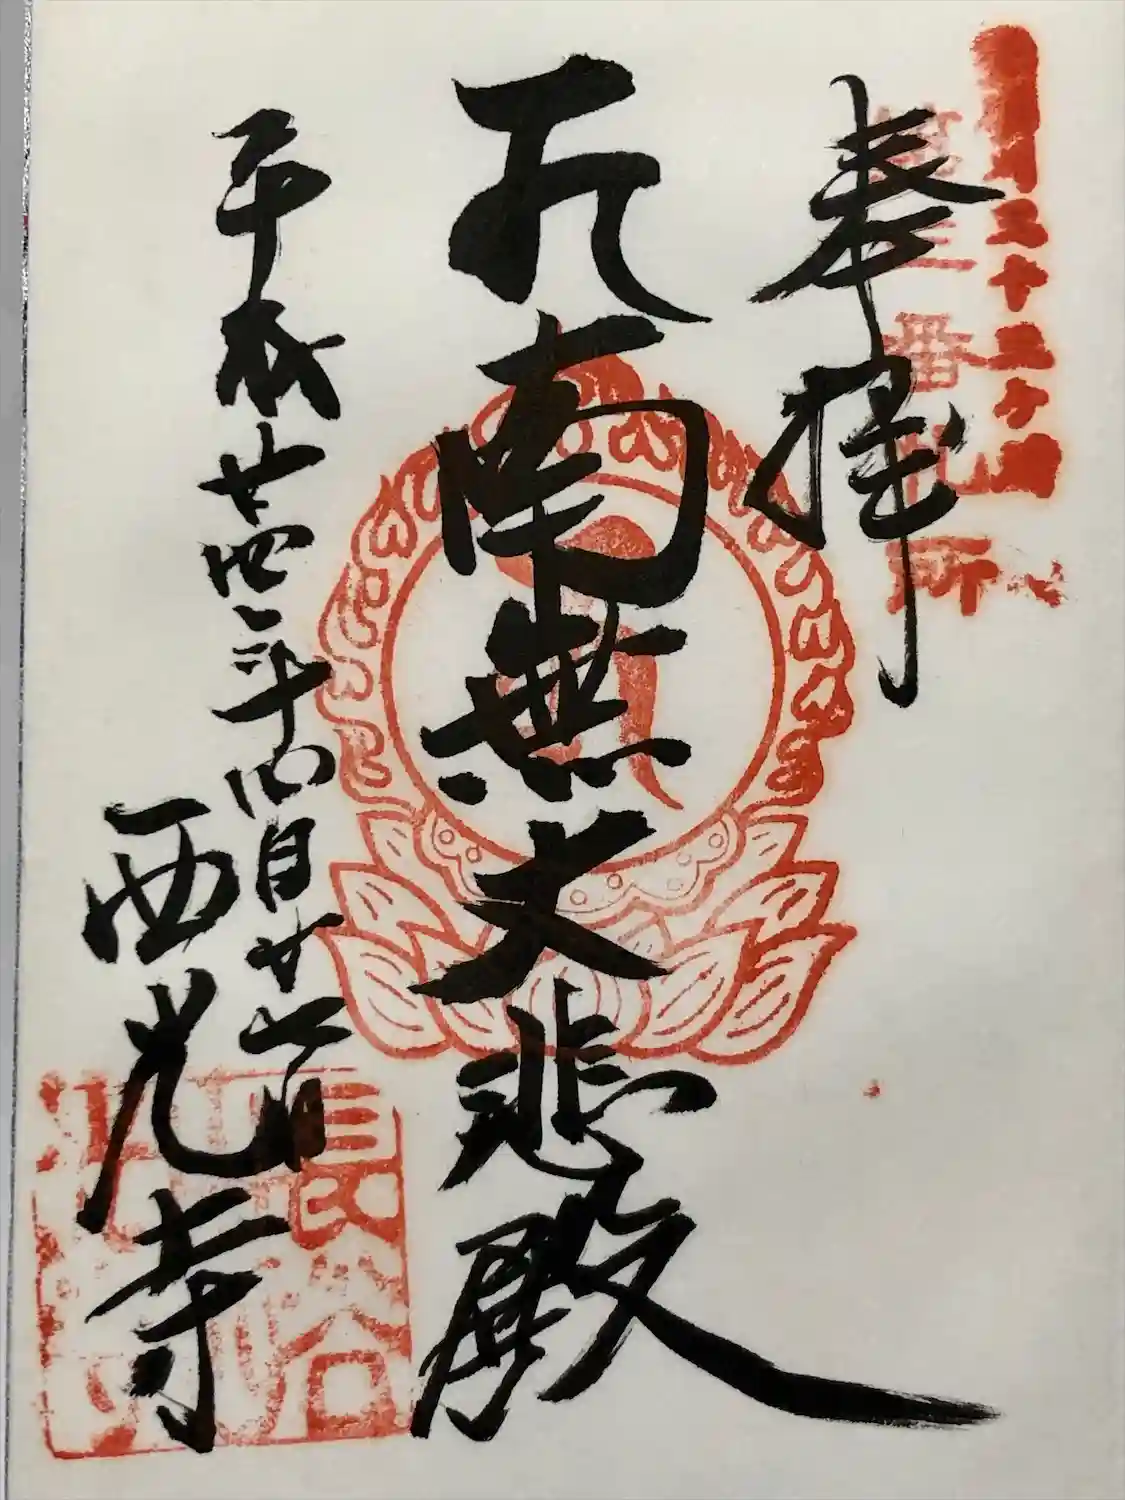 三十三ヶ所
第三番札所
奉拝
南無大悲殿
平成廿四年四月廿
西光寺
長谷